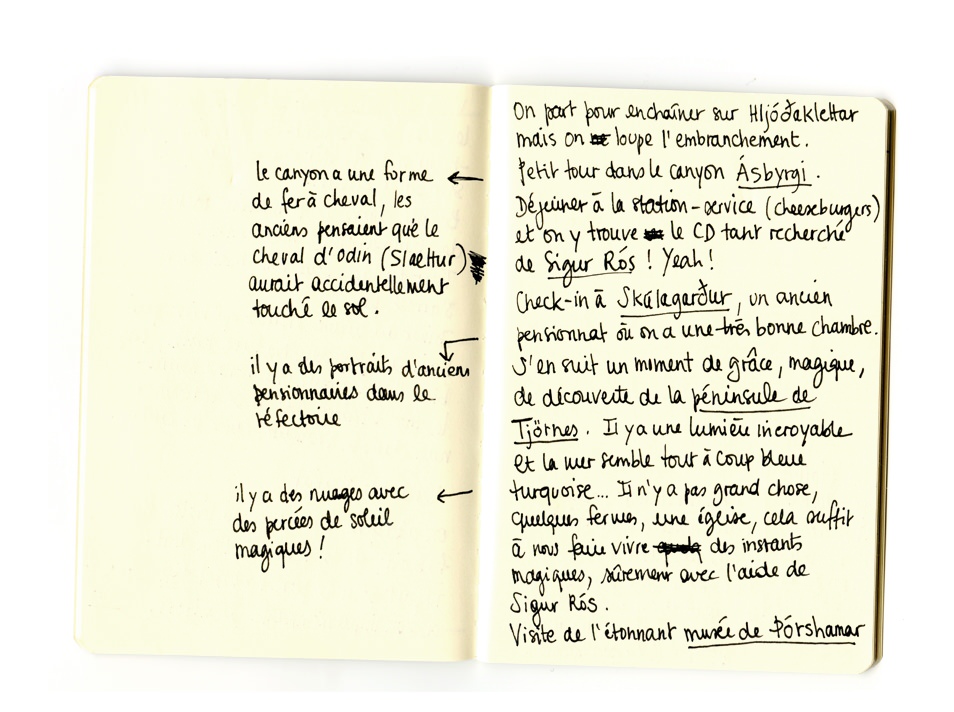 le canyon a une forme
de fer à cheval, les
anciens pensaient que le
cheval d'Odin (Slaettur)
aurait accidentellement
touché le sol.
il y a des portraits d'anciens
pensionnaires dans le
réfectoire
il y a des nuages avec
des percées de soleil
magiques !
On part pour enchaîner sur Hljóðaklettar
mais on loupe l'embranchement.
Petit tour dans le canyon Ásbyrgi.
Déjeuner à la station-service (cheeseburgers)
et on y trouve le CD tant recherché
de Sigur Rós ! Yeah !
Check-in à Skúlagarður, un ancien
pensionnat où on a une très bonne chambre.
S'en suit un moment de grâce, magique,
de découverte de la péninsule de
Tjörnes. Il y a une lumière incroyable
et la mer semble tout à coup bleue
turquoise... Il n'y a pas grand chose,
quelques fermes, une église, cela suffit
à nous faire vivre des instants
magiques, sûrement avec l'aide de
Sigur Rós.
Visite de l'étonnant musée de Þórshamar